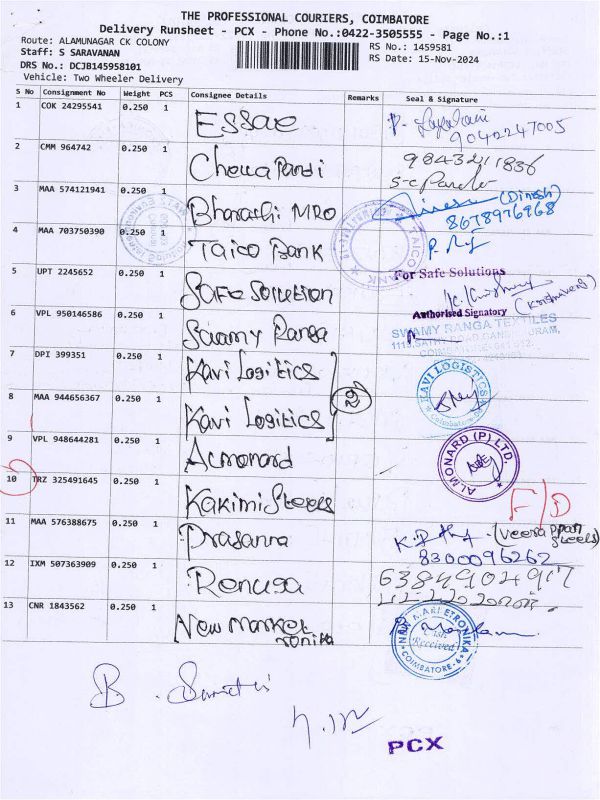 THE PROFESSIONAL COURIERS, COIMBATORE
Delivery Runsheet - PCX - Phone No.:0422-3505555 - Page No.:1
Route: ALAMUNAGAR CK COLONY
Staff: S SARAVANAN
DRS No.: DCJB145958101
Vehicle: Two Wheeler Delivery
RS No.: 1459581
RS Date: 15-Nov-2024
S No Consignment No Weight PCS Consignee Details Remarks Seal & Signature
1 COK 24295541 0.250 1 Essae
9042247005
2 CMM 964742 0.250 1 Chella Pandi 9843211836
3 MAA 574121941 0.250 1 Bharathi MRO (Dinesh)
8678976968
4 MAA 703750390 0.250 1 Taico Bank TAICO BANK
5 UPT 2245652 0.250 1 Safe Solution For Safe Solutions
Authorised Signatory
6 VPL 950146586 0.250 1 Swamy Ranga SWAMY RANGA TEXTILES
7 DPI 399351 0.250 1 Kavi Logitics
2 KAVI LOGISTICS
Coimbatore
8 MAA 944656367 0.250 1 Kavi Logitics
9 VPL 948644281 0.250 1 Acmonard ALMONARD (P) LTD.
10 TRZ 325491645 0.250 1 Kakimi Steels F/D
11 MAA 576388675 0.250 1 Prasanna (Veerappan Steels)
8300096262
12 IXM 507363909 0.250 1 Renuga
13 CNR 1843562 0.250 1 New Market
Received
COIMBATORE
PCX